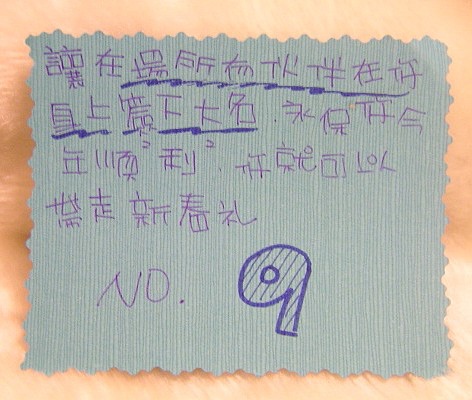 讓在場所有伙伴在你
身上寫下大名.永保你今
年順²利².你就可以
帶走新春礼
NO. 9